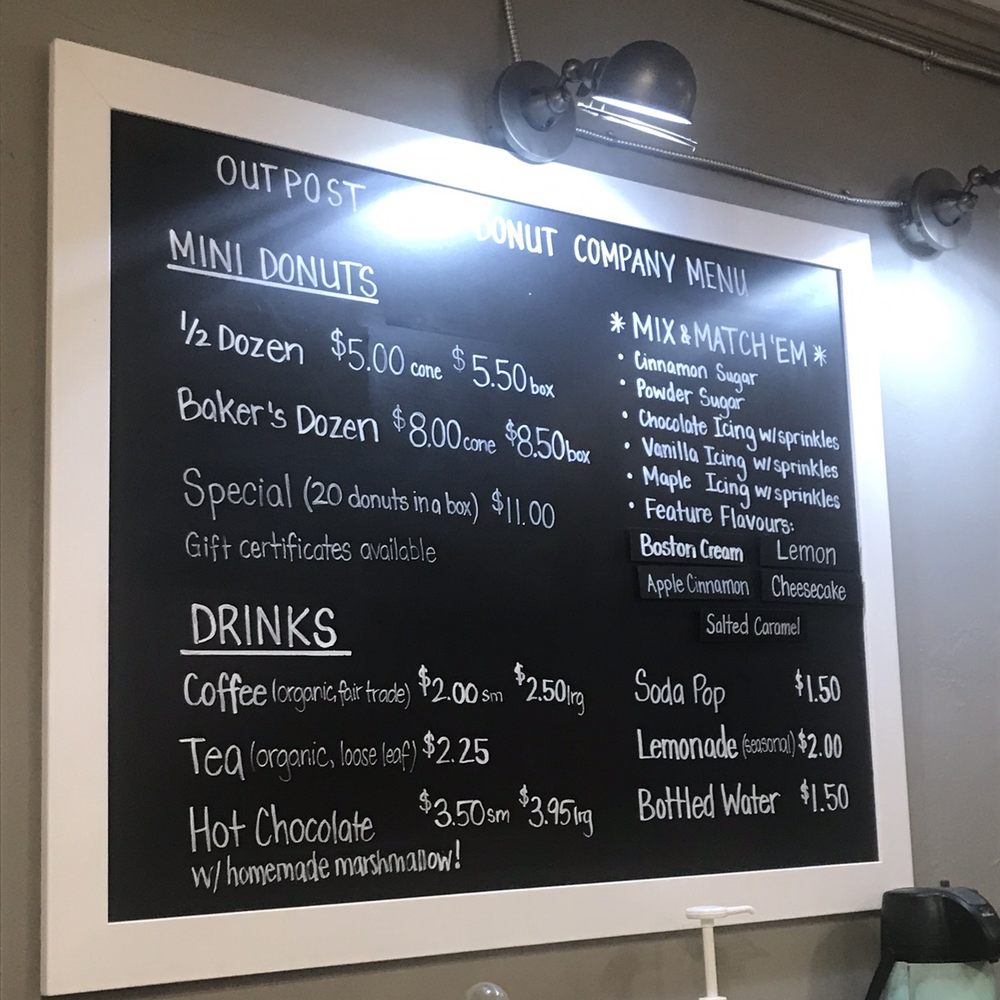 OUTPOST DONUT COMPANY MENU
MINI DONUTS
1/2 Dozen $5.00 cone $5.50 box
Baker's Dozen $8.00 cone $8.50 box
Special (20 donuts in a box) $11.00
Gift certificates available
* MIX & MATCH 'EM *
• Cinnamon Sugar
• Powder Sugar
• Chocolate Icing w/ sprinkles
• Vanilla Icing w/ sprinkles
• Maple Icing w/ sprinkles
• Feature Flavours:
Boston Cream Lemon
Apple Cinnamon Cheesecake
Salted Caramel
DRINKS
Coffee (organic, fair trade) $2.00 sm $2.50 lrg
Tea (organic, loose leaf) $2.25
Hot Chocolate $3.50 sm $3.95 lrg
w/ homemade marshmallow!
Soda Pop $1.50
Lemonade (seasonal) $2.00
Bottled Water $1.50